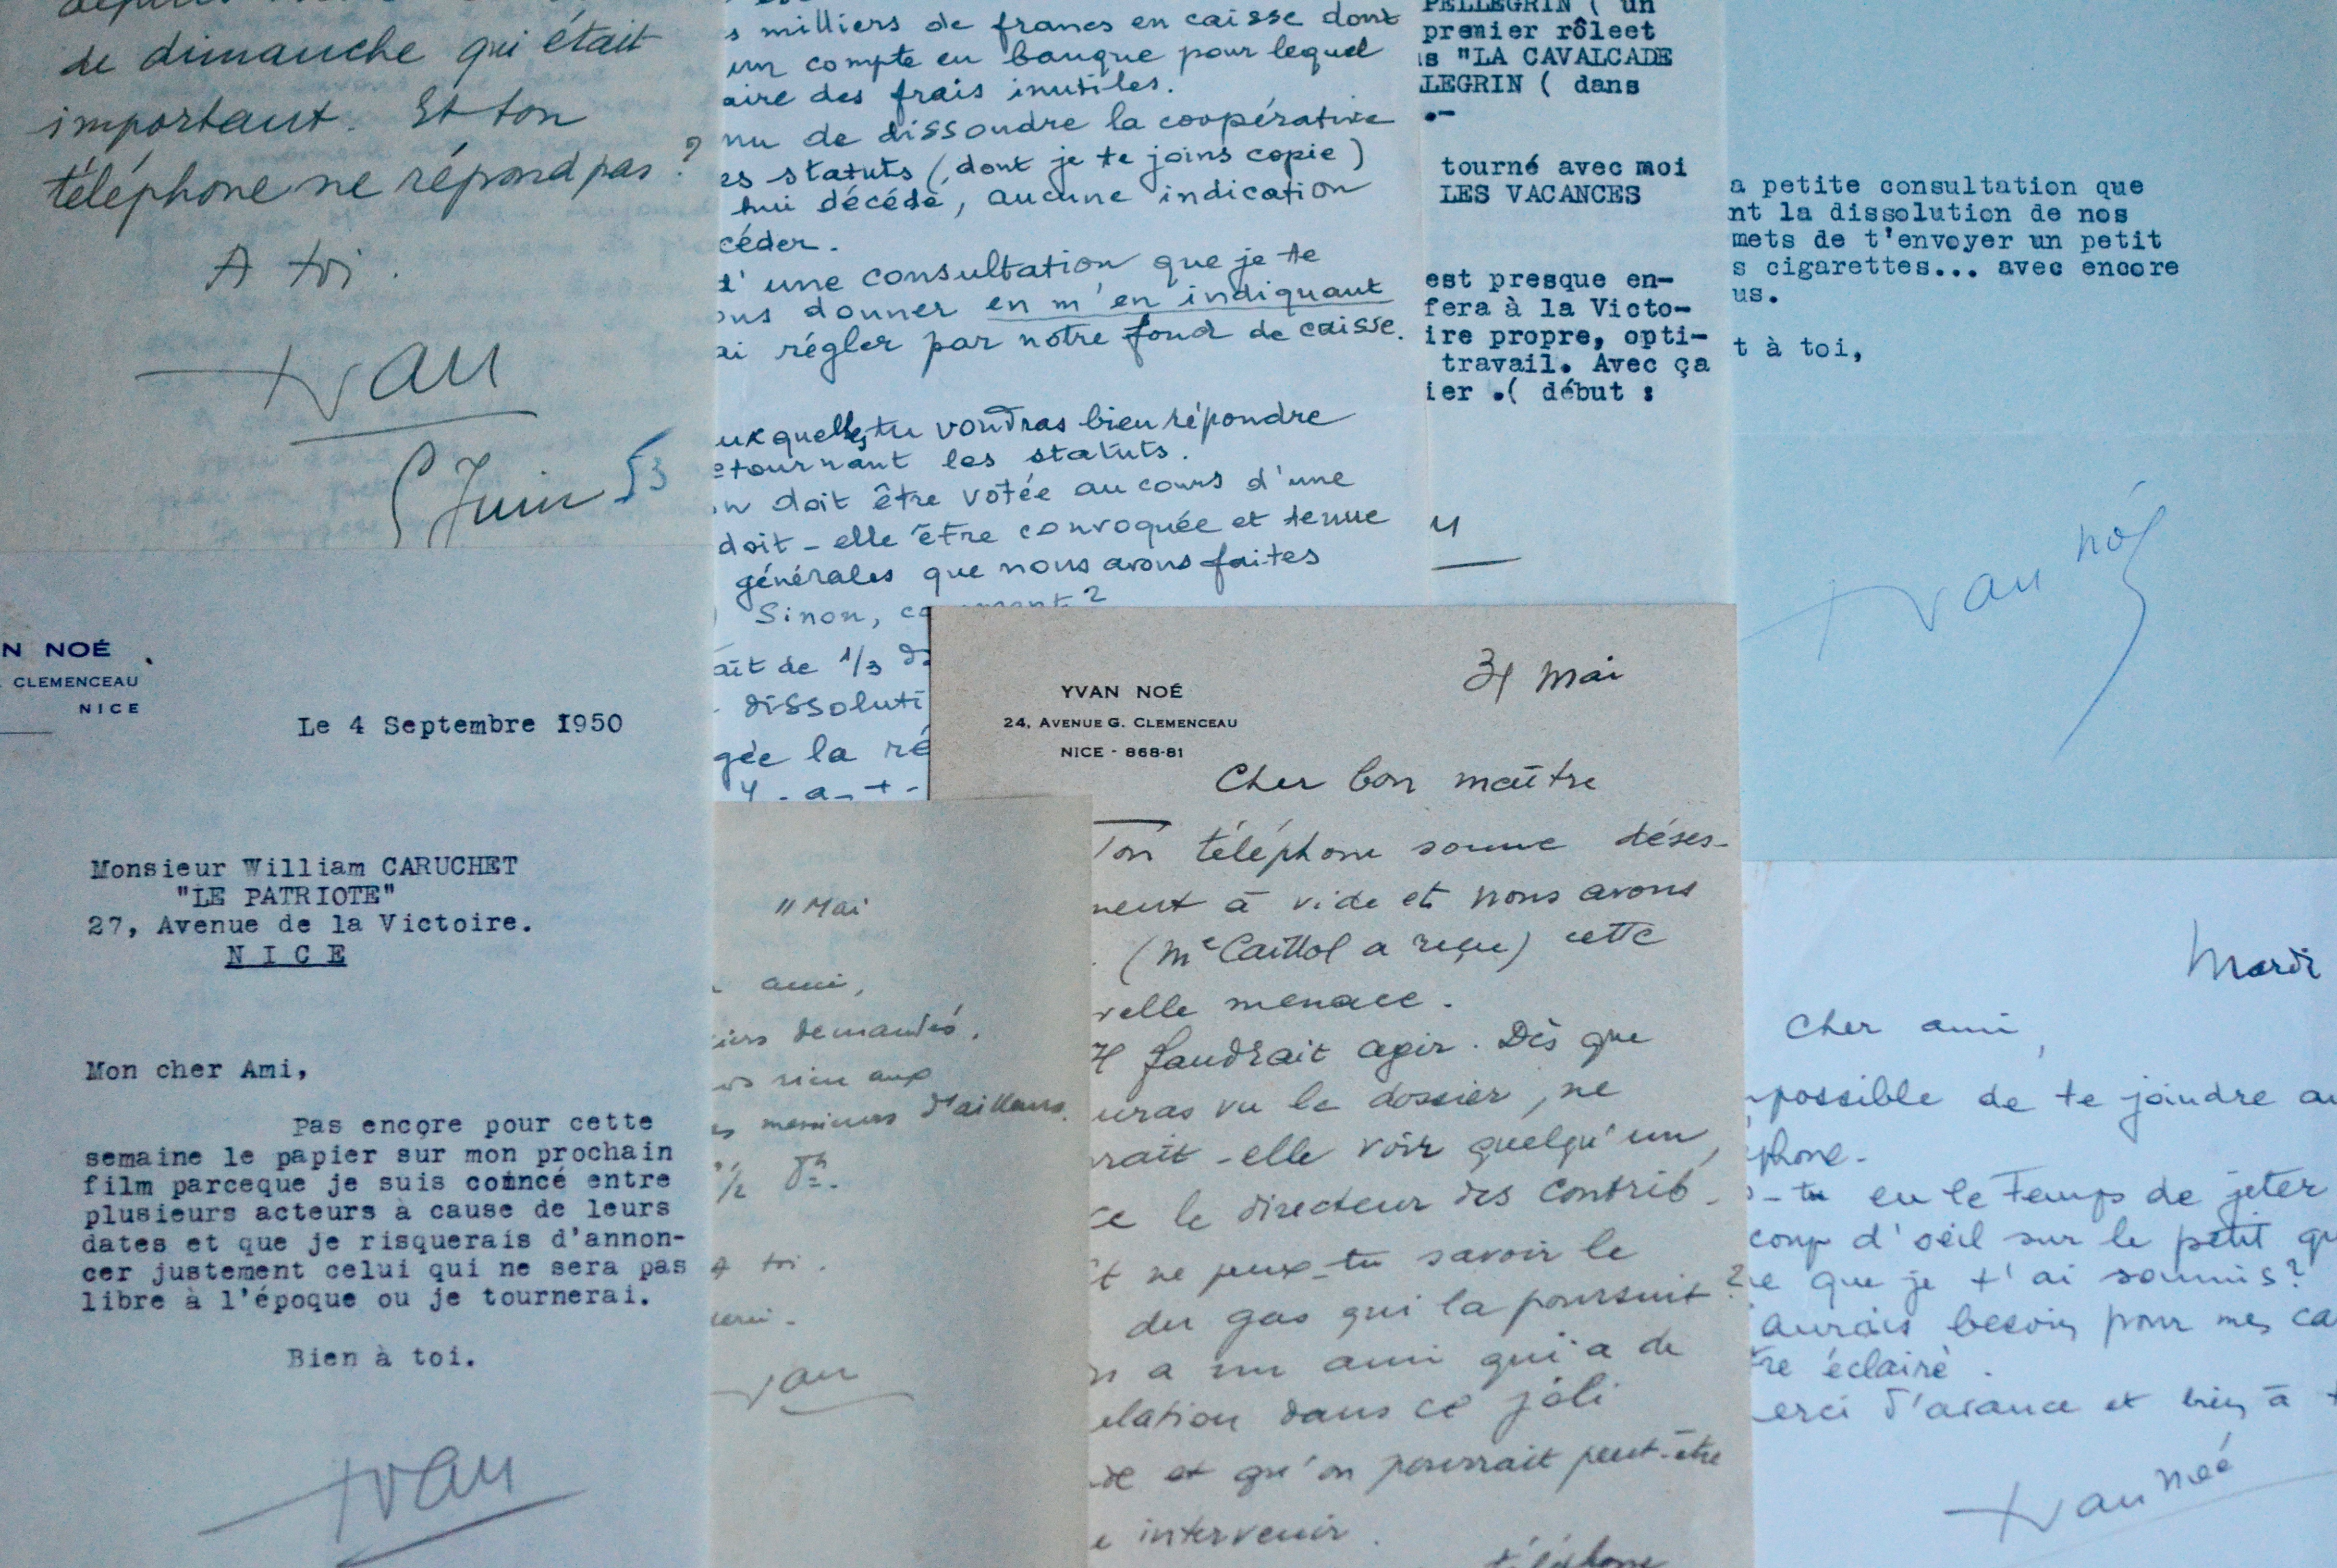 de dimanche qui était
important. Et ton
téléphone ne répond pas ?
A toi.
Yvan
5 Juin 53
N NOÉ
CLEMENCEAU
NICE
Le 4 Septembre 1950
Monsieur William CARUCHET
"LE PATRIOTE"
27, Avenue de la Victoire.
NICE
Mon cher Ami,
Pas encore pour cette
semaine le papier sur mon prochain
film parceque je suis coincé entre
plusieurs acteurs à cause de leurs
dates et que je risquerais d'annon-
cer justement celui qui ne sera pas
libre à l'époque ou je tournerai.
Bien à toi.
Yvan
s milliers de francs en caisse dont
un compte en banque pour lequel
aire des frais inutiles.
nu de dissoudre la coopérative
es statuts (dont je te joins copie)
hui décédé, aucune indication
céder.
d'une consultation que je te
ous donner en m'en indiquant
ai régler par notre fond de caisse.
uxquelles tu voudras bien répondre
etournant les statuts.
on doit être votée au cours d'une
doit-elle être convoquée et tenue
générales que nous avons faites
Sinon, comment ?
ait de 1/3 d
dissoluti
gée la ré
Y-a-t-
PELLEGRIN ( un
premier rôleet
s "LA CAVALCADE
LEGRIN ( dans
.-
tourné avec moi
LES VACANCES
est presque en-
fera à la Victo-
ire propre, opti-
travail. Avec ça
ier .( début :
a petite consultation que
nt la dissolution de nos
mets de t'envoyer un petit
s cigarettes... avec encore
us.
t à toi,
Yvan Noé
11 Mai
ami,
iers demandés.
rien aux
messieurs d'ailleurs.
A toi.
Yvan
YVAN NOÉ
24, AVENUE G. CLEMENCEAU
NICE - 868-81
31 Mai
Cher bon maître
Ton téléphone sonne déses-
ment à vide et nous avons
(Me Caillol a reçu) cette
velle menace.
Il faudrait agir. Dès que
uras vu le dossier, ne
rait-elle voir quelqu'un,
ce le directeur des Contrib.
t ne peux-tu savoir le
du gas qui la poursuit ?
n a un ami qui a de
elation dans ce joli
de et qu'on pourrait peut-être
e intervenir.
téléphone
Mardi
Cher ami,
mpossible de te joindre au
éphone.
s-tu eu le temps de jeter
coup d'oeil sur le petit qu
re que je t'ai soumis ?
'aurais besoin pour mes ca
tre éclairé.
erci d'avance et bien à t
Yvan Noé